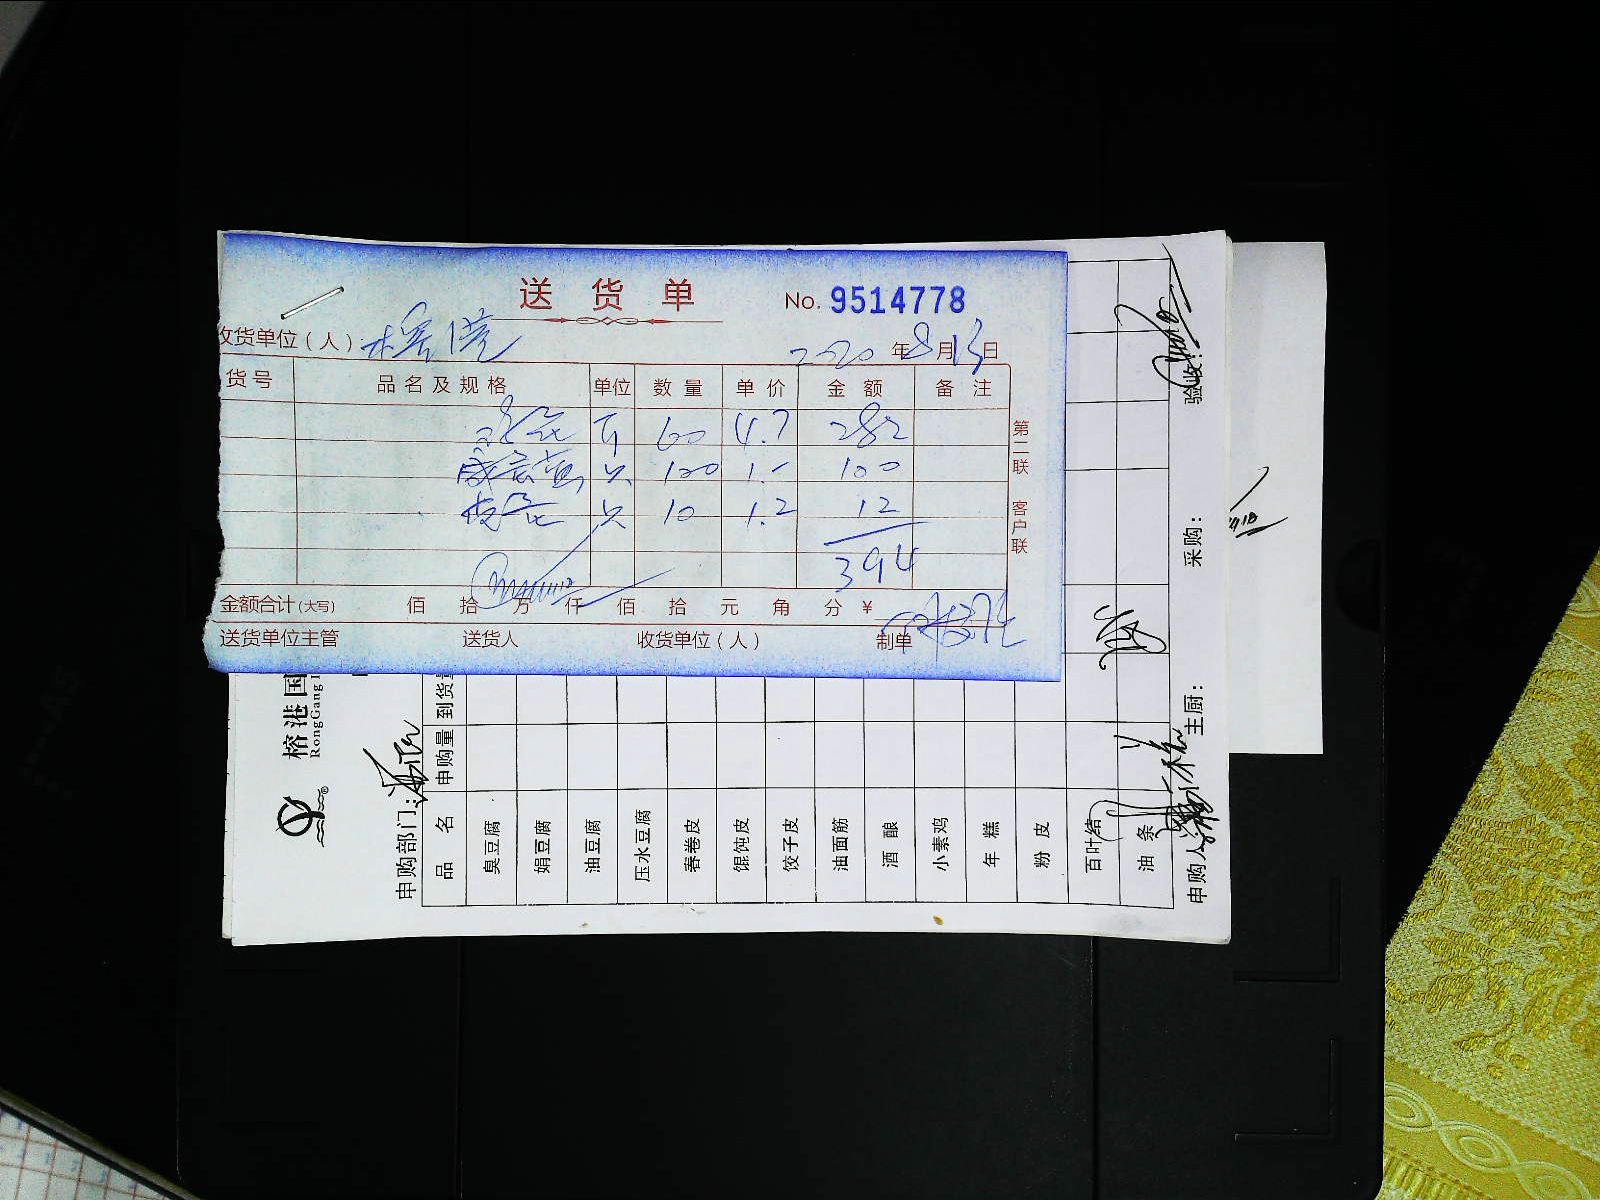 送货单 No. 9514778
收货单位(人) 榕港 2020年8月13日
货号 品名及规格 单位 数量 单价 金额 备注
斤 60 4.7 282
咸蛋黄 只 100 1.- 100
皮蛋 只 10 1.2 12
394
金额合计(大写) 佰 拾 万 仟 佰 拾 元 角 分 ¥
送货单位主管 送货人 收货单位(人) 制单
第二联 客户联
榕港国
RongGang
申购部门:
品名 申购量 到货量
臭豆腐
娟豆腐
油豆腐
压水豆腐
春卷皮
馄饨皮
饺子皮
油面筋
酒酿
小素鸡
年糕
粉皮
百叶结
油条
申购人: 主厨: 采购: 验收: